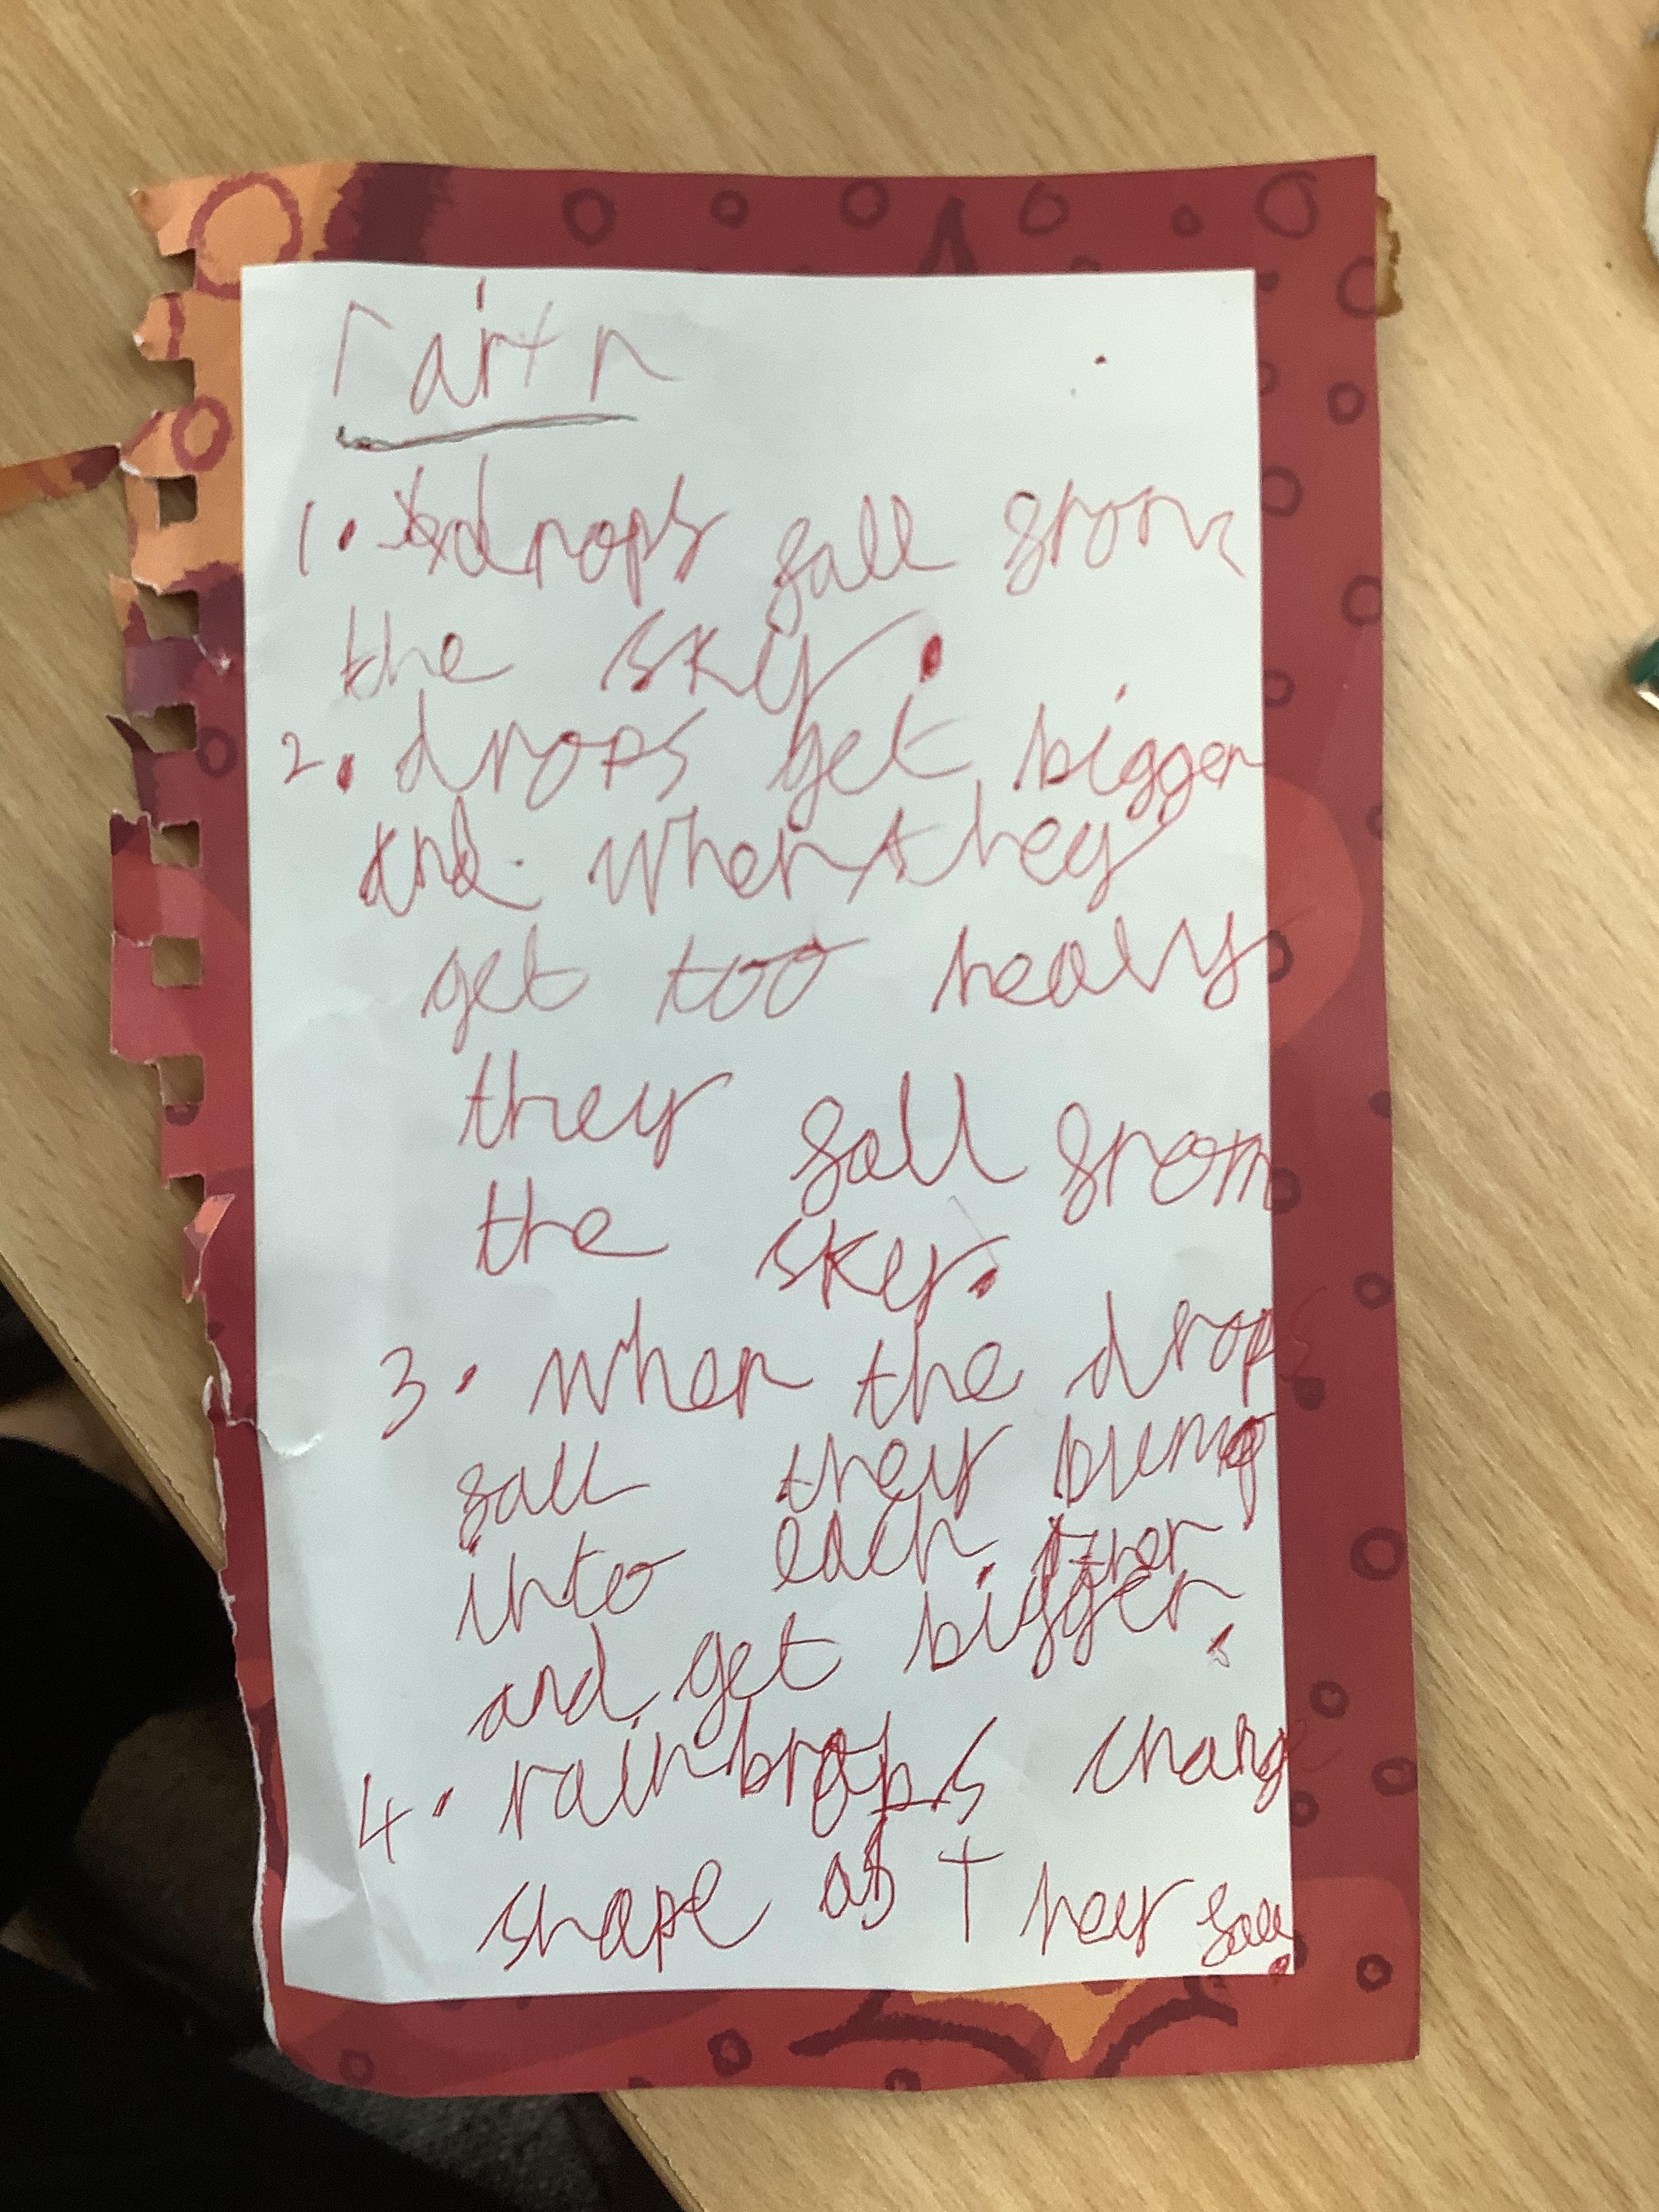 rain
1. drops fall from
the sky.
2. drops get bigger
and when they
get too heavy
they fall from
the sky.
3. when the drops
fall they bump
into each other
and get bigger.
4. raindrops change
shape as they fall.